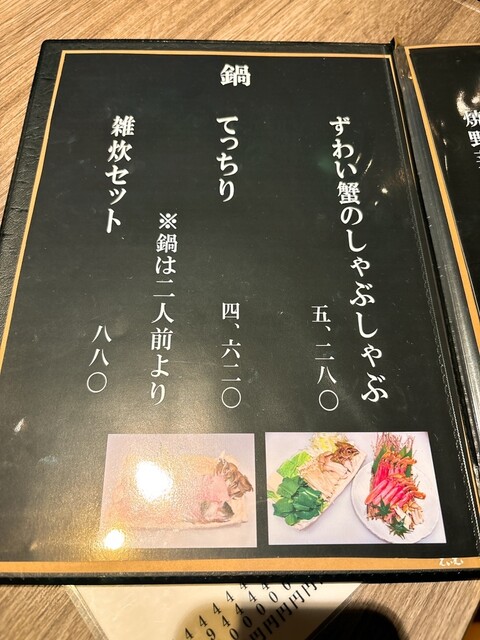 鍋
ずわい蟹のしゃぶしゃぶ
五、二八〇
てっちり
四、六二〇
※鍋は二人前より
雑炊セット
八八〇
焼野